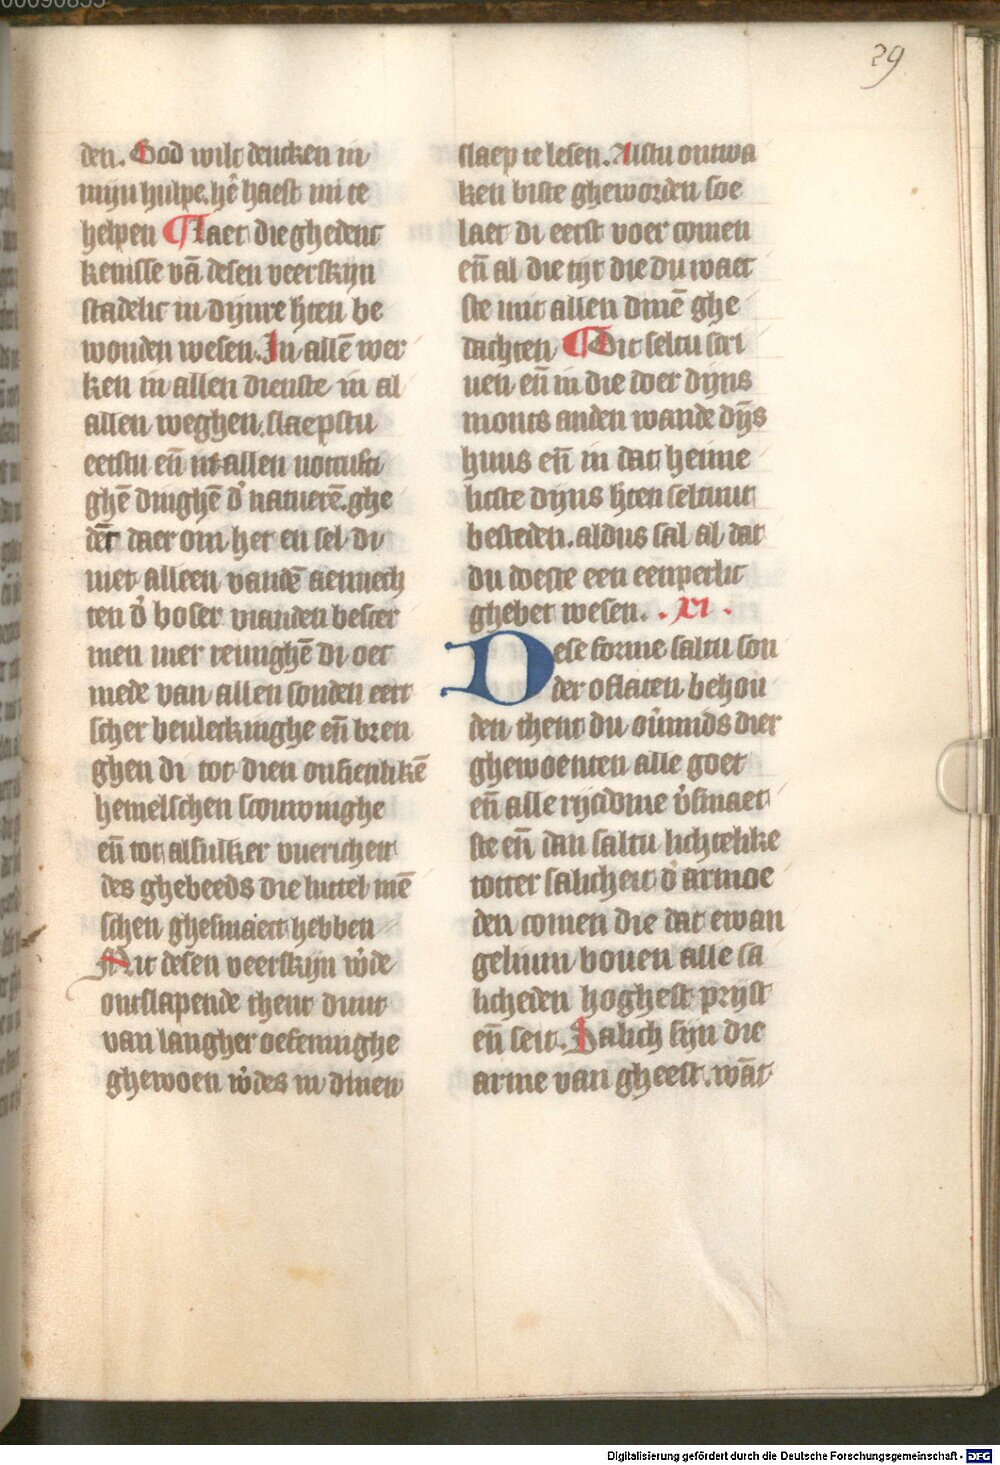 00090855
29
den. God wilt dencken in
mijn hulpe. hē haest mi te
helpen ¶ Laet die ghedenc
kenisse vā desen veerskijn
stadelic in dijnre hten be
wonden wesen. In allē wer
ken in allen dienste in al
allen weghen. slaepstu
eetstu eñ in allen nottufti
ghē dinghē d' natuerē. ghe
dēc daer om het en sel di
niet alleen vandē aennech
ten d' boser vianden bescer
men mer reynighē di oec
mede van allen sonden eert
scher bevleckinghe eñ bren
ghen di tot dien onsienlikē
hemelschen scouwinghe
eñ tot alsulker vuericheit
des ghebeeds die luttel mē
schen ghesmaect hebben
Mit desen veerskijn w'de
ontslapende thent duut
van langher oefeninghe
ghewoen w'des in dinen
slaep te lesen. Alstu ontwa
ken biste gheworden soe
laet di eerst voer comen
eñ al die tijt die du waec
ste mit allen dinē ghe
dachten ¶ Dit seltu scri
uen eñ in die doer dijns
monts anden wande dijs
huus eñ in dat heime
licste dijns hten seltuut
besteden. aldus sal al dat
du doeste een eenperlic
ghebet wesen. . xi .
Dese forme saltu son
der oflaten behou
den thent du ou'mids dier
ghewoenten alle goet
eñ alle rijcdome v'smaet
ste eñ dan saltu lichtelike
totter salicheit d' armoe
den comen die dat ewan
gelium bouen alle sa
licheden hoghest prijst
eñ seit. Salich sijn die
arme van gheest. wāt
Digitalisierung gefördert durch die Deutsche Forschungsgemeinschaft - DFG